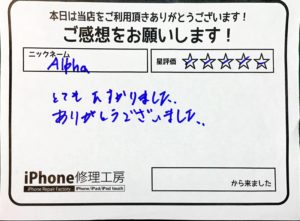 本日は当店をご利用頂きありがとうございます!
ご感想をお願いします!
ニックネーム
Alpha
星評価 ☆☆☆☆☆
とても たすかりました。
ありがとうございました。
iPhone修理工房
iPhone Repair Factory iPhone/iPad/iPod touch
から来ました